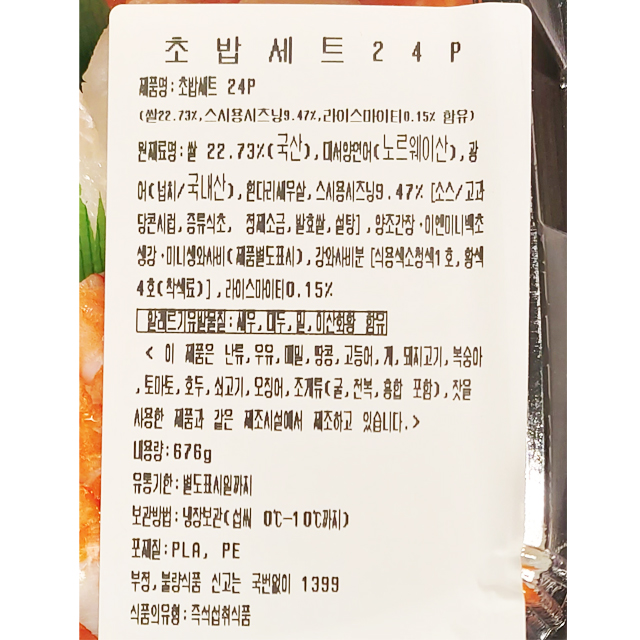 초밥세트24P
제품명:초밥세트 24P
(쌀22.73%,스시용시즈닝9.47%,라이스마이티0.15% 함유)
원재료명:쌀 22.73%(국산),대서양연어(노르웨이산),광
어(넙치/국내산),흰다리새우살,스시용시즈닝9.47%[소스/고과
당콘시럽,증류식초, 정제소금,발효쌀,설탕],양조간장·이엔미니백초
생강·미니생와사비(제품별도표시),강와사비분[식용색소청색1호,황색
4호(착색료)],라이스마이티0.15%
알레르기유발물질:새우,대두,밀,이산화황 함유
< 이 제품은 난류,우유,메밀,땅콩,고등어,게,돼지고기,복숭아
,토마토,호두,쇠고기,오징어,조개류(굴,전복,홍합 포함),잣을
사용한 제품과 같은 제조시설에서 제조하고 있습니다.>
내용량:676g
유통기한:별도표시일까지
보관방법:냉장보관(섭씨 0℃-10℃까지)
포재질:PLA, PE
부정,불량식품 신고는 국번없이 1399
식품의유형:즉석섭취식품